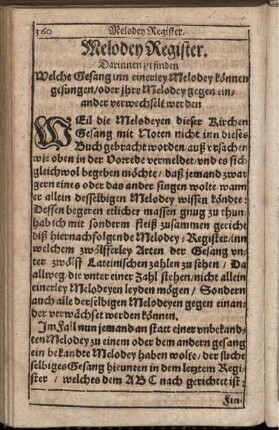 360 Melodey Register.
Melodey Register.
Darinnen zu finden
Welche Gesang inn einerley Melodey können
gesungen / oder jhre Melodey gegen ein-
ander verwechselt werden
WEil die Melodeyen dieser Kirchen
Gesang mit Noten nicht inn dieses
Buch gebracht worden / auß vrsachen
wie oben in der Vorrede vermeldet / vnd es sich
gleichwol begeben möchte / daß jemand zwar
gern eines oder das ander singen wolte wann
er allein desselbigen Melodey wissen köndte:
Dessen begeren etlicher massen gnug zu thun
hab ich mit sonderm fleiß zusammen gericht
diß hiernachfolgende Melodey / Register / inn
welchem zwölfferley Arten der Gesang vn-
ter zwölff Lateinischen zahlen zu sehen / Da
allweg / die vnter einer Zahl stehen / nicht allein
einerley Melodeyen leyden mögen / Sondern
auch alle derselbigen Melodeyen gegen einan-
der verwächselt werden können.
Im Fall nun jemand an statt einer vnbekand-
ten Melodey zu einem oder dem andern gesang
ein bekandte Melodey haben wolte / der suche
selbiges Gesang hieunten in dem letztern Regi-
ster / welches dem A B C nach gerichtet ist:
Fin-